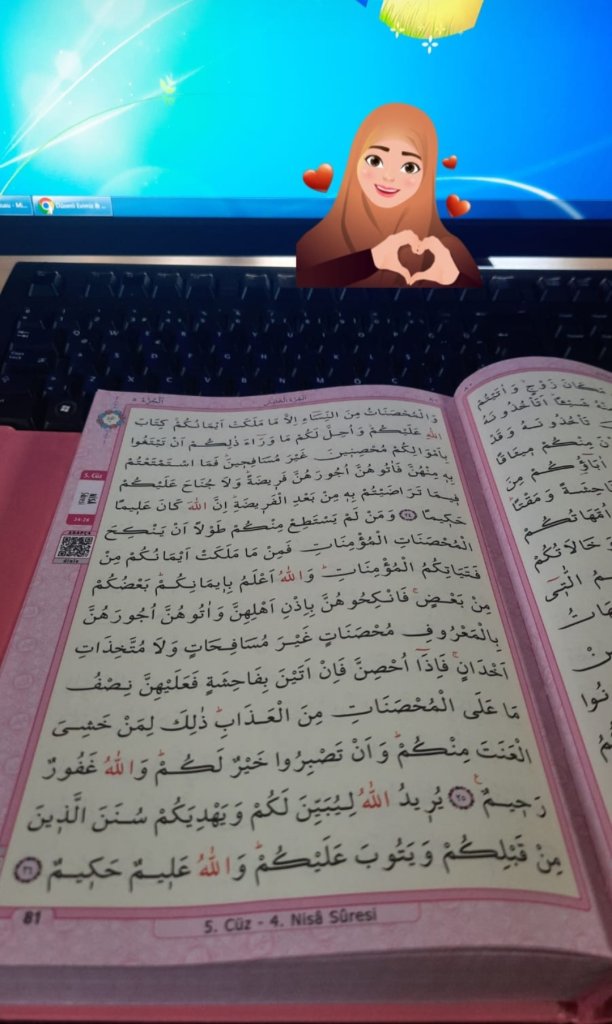 وَالْمُحْصَنَاتُ مِنَ النِّسَٓاءِ اِلَّا مَا مَلَكَتْ اَيْمَانُكُمْ كِتَابَ
اللّٰهِ عَلَيْكُمْ وَاُحِلَّ لَكُمْ مَا وَرَٓاءَ ذٰلِكُمْ اَنْ تَبْتَغُوا
بِاَمْوَالِكُمْ مُحْصِن۪ينَ غَيْرَ مُسَافِح۪ينَ فَمَا اسْتَمْتَعْتُمْ
بِه۪ مِنْهُنَّ فَاٰتُوهُنَّ اُجُورَهُنَّ فَر۪يضَةً وَلَا جُنَاحَ عَلَيْكُمْ
ف۪يمَا تَرَاضَيْتُمْ بِه۪ مِنْ بَعْدِ الْفَر۪يضَةِ اِنَّ اللّٰهَ كَانَ عَل۪يمًا
حَك۪يمًا ﴿٢٤﴾ وَمَنْ لَمْ يَسْتَطِعْ مِنْكُمْ طَوْلًا اَنْ يَنْكِحَ
الْمُحْصَنَاتِ الْمُؤْمِنَاتِ فَمِنْ مَا مَلَكَتْ اَيْمَانُكُمْ مِنْ
فَتَيَاتِكُمُ الْمُؤْمِنَاتِ وَاللّٰهُ اَعْلَمُ بِا۪يمَانِكُمْ بَعْضُكُمْ
مِنْ بَعْضٍ فَانْكِحُوهُنَّ بِاِذْنِ اَهْلِهِنَّ وَاٰتُوهُنَّ اُجُورَهُنَّ
بِالْمَعْرُوفِ مُحْصَنَاتٍ غَيْرَ مُسَافِحَاتٍ وَلَا مُتَّخِذَاتِ
اَخْدَانٍ فَاِذَٓا اُحْصِنَّ فَاِنْ اَتَيْنَ بِفَاحِشَةٍ فَعَلَيْهِنَّ نِصْفُ
مَا عَلَى الْمُحْصَنَاتِ مِنَ الْعَذَابِ ذٰلِكَ لِمَنْ خَشِيَ
الْعَنَتَ مِنْكُمْ وَاَنْ تَصْبِرُوا خَيْرٌ لَكُمْ وَاللّٰهُ غَفُورٌ
رَح۪يمٌ ﴿٢٥﴾ يُر۪يدُ اللّٰهُ لِيُبَيِّنَ لَكُمْ وَيَهْدِيَكُمْ سُنَنَ الَّذ۪ينَ
مِنْ قَبْلِكُمْ وَيَتُوبَ عَلَيْكُمْ وَاللّٰهُ عَل۪يمٌ حَك۪يمٌ ﴿٢٦﴾
5. Cüz
24-26
81
5. Cüz - 4. Nisâ Sûresi